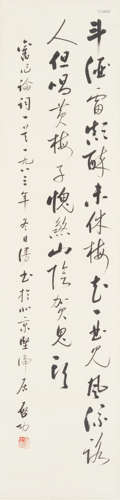 斗酒雷颠醉未休梅花一曲见风流路
人但唱黄梅子愧煞山阴贺鬼头
旧作论词一首一九八三年冬日漫书于北京坚净居启功